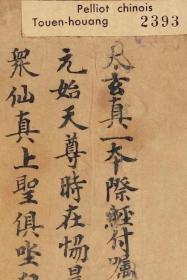 Pelliot chinois
Touen-houang 2393
太玄真一本際經付囑
元始天尊時在
眾仙真上聖俱坐